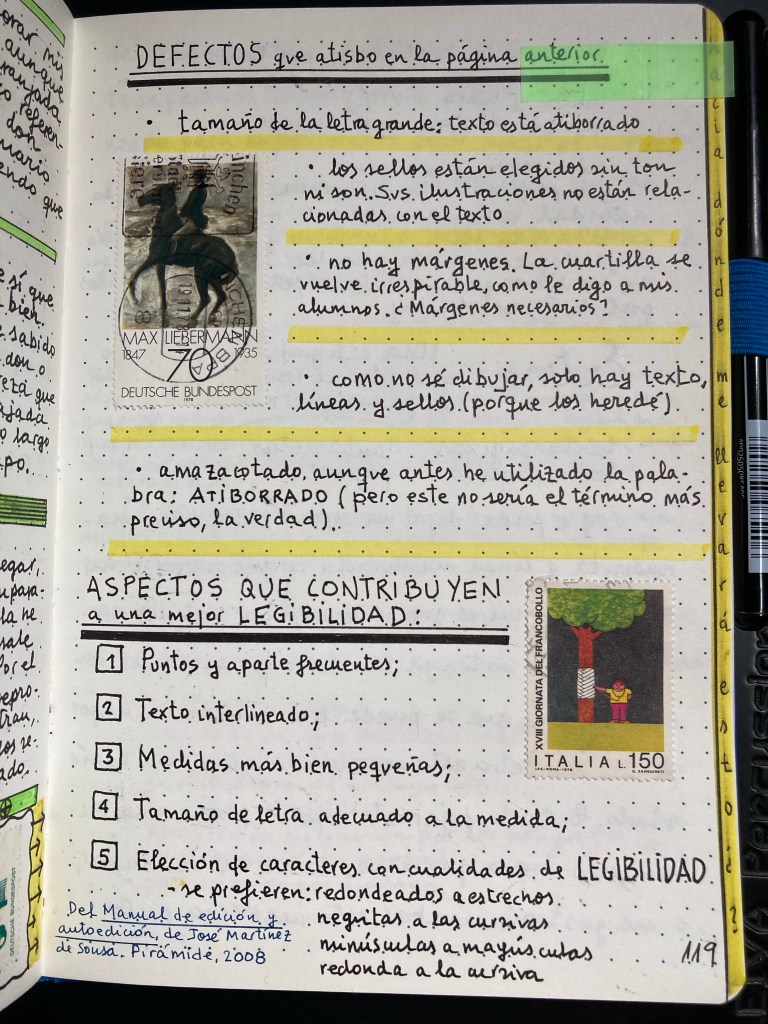 DEFECTOS que atisbo en la página anterior.
• tamaño de la letra grande: texto está atiborrado
• los sellos están elegidos sin ton
ni son. Sus ilustraciones no están rela-
cionadas con el texto.
• no hay márgenes. La cuartilla se
vuelve irrespirable, como le digo a mis
alumnos. ¿Márgenes necesarios?
• como no sé dibujar, solo hay texto,
líneas y sellos (porque los heredé).
• amazacotado, aunque antes he utilizado la pala-
bra: ATIBORRADO (pero este no sería el término más
preciso, la verdad).
MAX LIEBERMANN
1847 1935
70
DEUTSCHE BUNDESPOST
1978
ASPECTOS QUE CONTRIBUYEN
a una mejor LEGIBILIDAD:
1 Puntos y aparte frecuentes;
2 Texto interlineado;
3 Medidas más bien pequeñas;
4 Tamaño de letra adecuado a la medida;
5 Elección de caracteres con cualidades de LEGIBILIDAD
- se prefieren: redondeados a estrechos.
. negritas a las cursivas
. minúsculas a mayúsculas
redonda a la cursiva
Del Manual de edición y
autoedición, de José Martínez
de Sousa. Pirámide, 2008
119
XVIII GIORNATA DEL FRANCOBOLLO
ITALIA L.150
hacia dónde me llevará esto?
Percussion